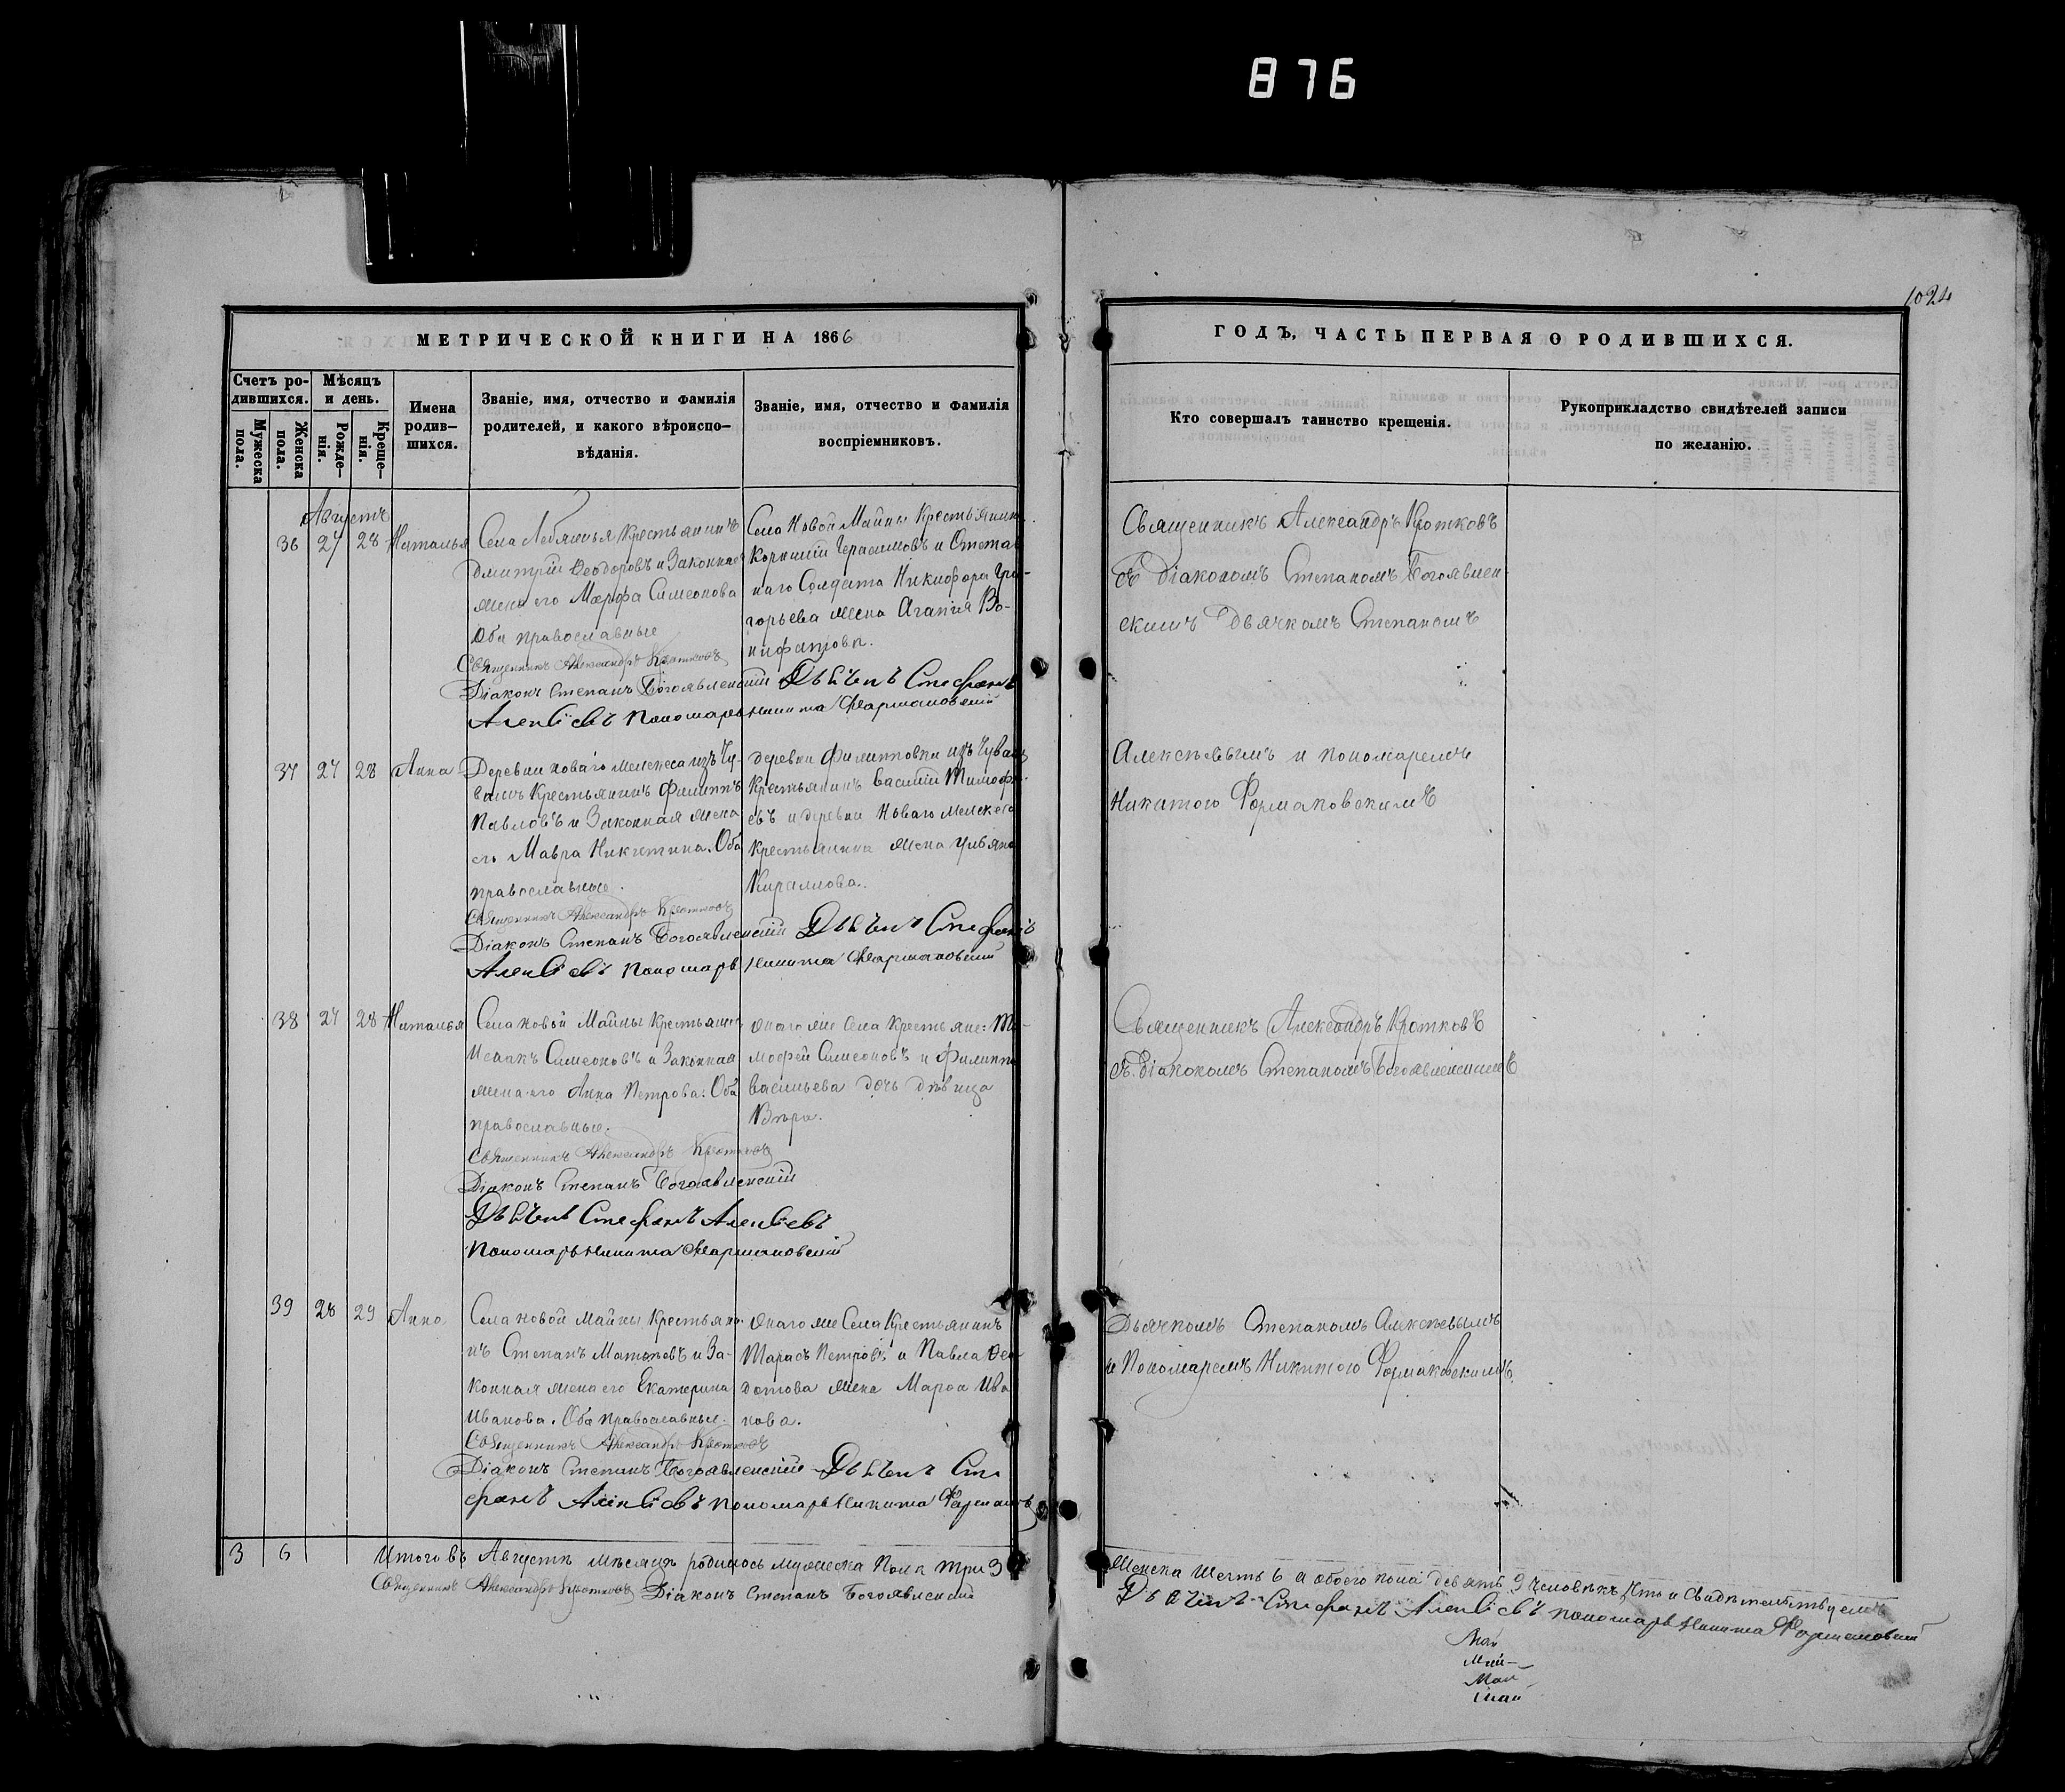 876
1024
МЕТРИЧЕСКОЙ КНИГИ НА 1866
Счетъ ро-
дившихся.
Мужеска
пола.
Женска
пола.
Мѣсяцъ
и день.
Рожде-
нія.
Креще-
нія.
Имена
родив-
шихся.
Званіе, имя, отчество и фамилія
родителей, и какого вѣроиспо-
вѣданія.
Званіе, имя, отчество и фамилія
воспріемниковъ.
ГОДЪ, ЧАСТЬ ПЕРВАЯ О РОДИВШИХСЯ.
Кто совершалъ таинство крещенія.
Рукоприкладство свидѣтелей записи
по желанію.
Августъ
36 27 28 Наталья
Села Лебяжья Крестьянинъ
Дмитрій Ѳеодоровъ и Законная
жена его Марфа Симеонова
Оба православные
Села Новой Майны Крестьянинъ
Корнилій Герасимовъ и Отстав
наго Солдата Никифора Гри-
горьева жена Агапія Во-
нифатова.
Священникъ Александръ Кротковъ
Діаконъ Степанъ Богоявленскій Дьячекъ Стефанъ
Алексіевъ Пономарь Никита Фармаковскій
37 27 28 Анна
Деревни Новаго Мелекеса изъ Чу-
вашъ Крестьянинъ Филиппъ
Павловъ и Законная жена
его Мавра Никитина. Оба
православные.
деревни Филипповки изъ Чувашъ
Крестьянинъ Василій Тимофе-
евъ и деревни Новаго Мелекеса
Крестьянина жена Ульяна
Кирилова.
Священникъ Александръ Кротковъ
Діаконъ Степанъ Богоявленскій Дьячекъ Стефанъ
Алексіевъ Пономарь Никита Фармаковскій
38 27 28 Наталья
Села Новой Майны Крестьянинъ
Исаакъ Симеоновъ и Законная
жена его Анна Петрова. Оба
православные.
онаго же Села Крестьяне: Ти-
мофей Симеоновъ и Филиппа
Васильева дочь дѣвица
Вѣра.
Священникъ Александръ Кротковъ
Діаконъ Степанъ Богоявленскій
Дьячекъ Стефанъ Алексіевъ
Пономарь Никита Фармаковскій
39 28 29 Анна
Села Новой Майны Крестьяни-
нъ Степанъ Матвѣевъ и За-
конная жена его Екатерина
Иванова. Оба православные.
онаго же Села Крестьянинъ
Тарасъ Петровъ и Павла Ѳео
дотова жена Марѳа Ива
нова.
Священникъ Александръ Кротковъ
Діаконъ Степанъ Богоявленскій Дьячекъ Сте
фанъ Алексіевъ Пономарь Никита
3 6 Итого въ Августѣ мѣсяцѣ родилось мужеска пола три 3
Священникъ Александръ Кротковъ Діаконъ Степанъ Богоявленскій
Священникъ Александръ Кротковъ
съ діакономъ Степаномъ Богоявлен-
скимъ Дьячкомъ Степаномъ
Алексѣевымъ и пономаремъ
Никитою Фармаковскимъ
Священникъ Александръ Кротковъ
съ діакономъ Степаномъ Богоявленскимъ
Дьячкомъ Степаномъ Алексѣевымъ
и Пономаремъ Никитою Фармаковскимъ.
Женска Шесть 6 а обоего пола девять 9 человѣкъ, что и Свидѣтельствуемъ
Дьячекъ Стефанъ Алексіевъ пономарь Никита Фармаковскій
Май
Май
Май
Май